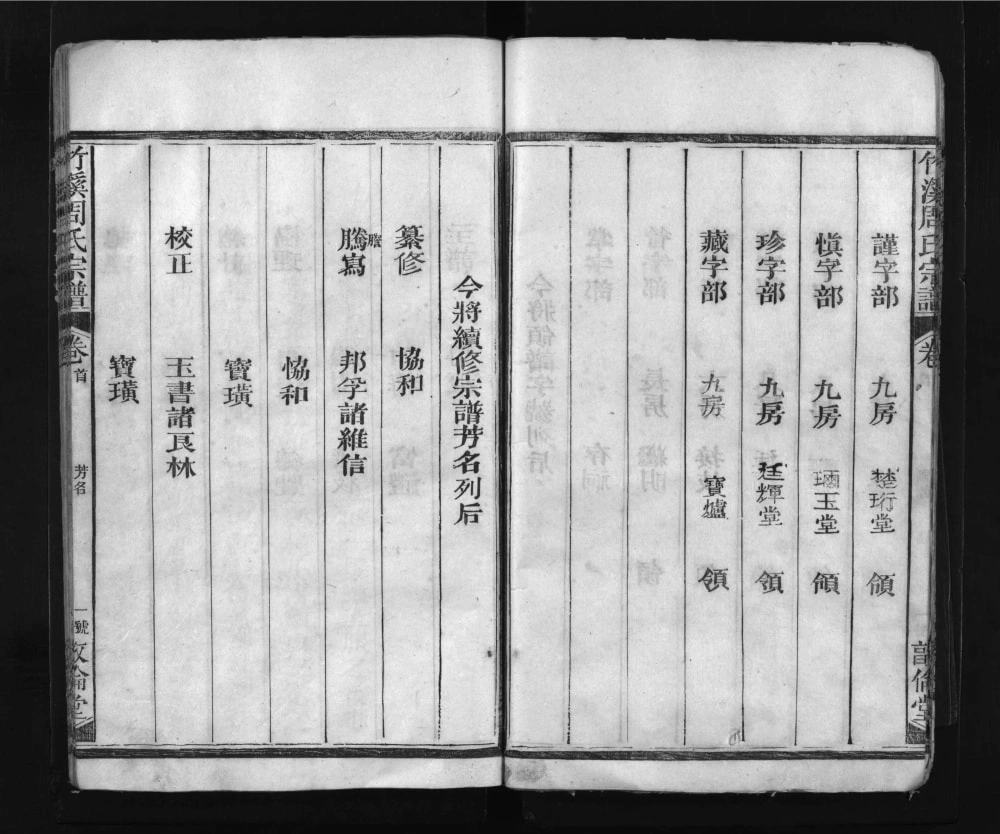 竹溪周氏宗譜 卷 敦倫堂
謹字部 九房 楚珩堂 領
慎字部 九房 璊玉堂 領
珍字部 九房 廷輝堂 領
藏字部 九房 寶爐 領
今將續修宗譜芳名列后
纂修 協和
騰寫 邦孚諸維信
恊和
寶璜
校正 玉書諸良林
寶璜
竹溪周氏宗譜 卷首 芳名 一號 敦倫堂